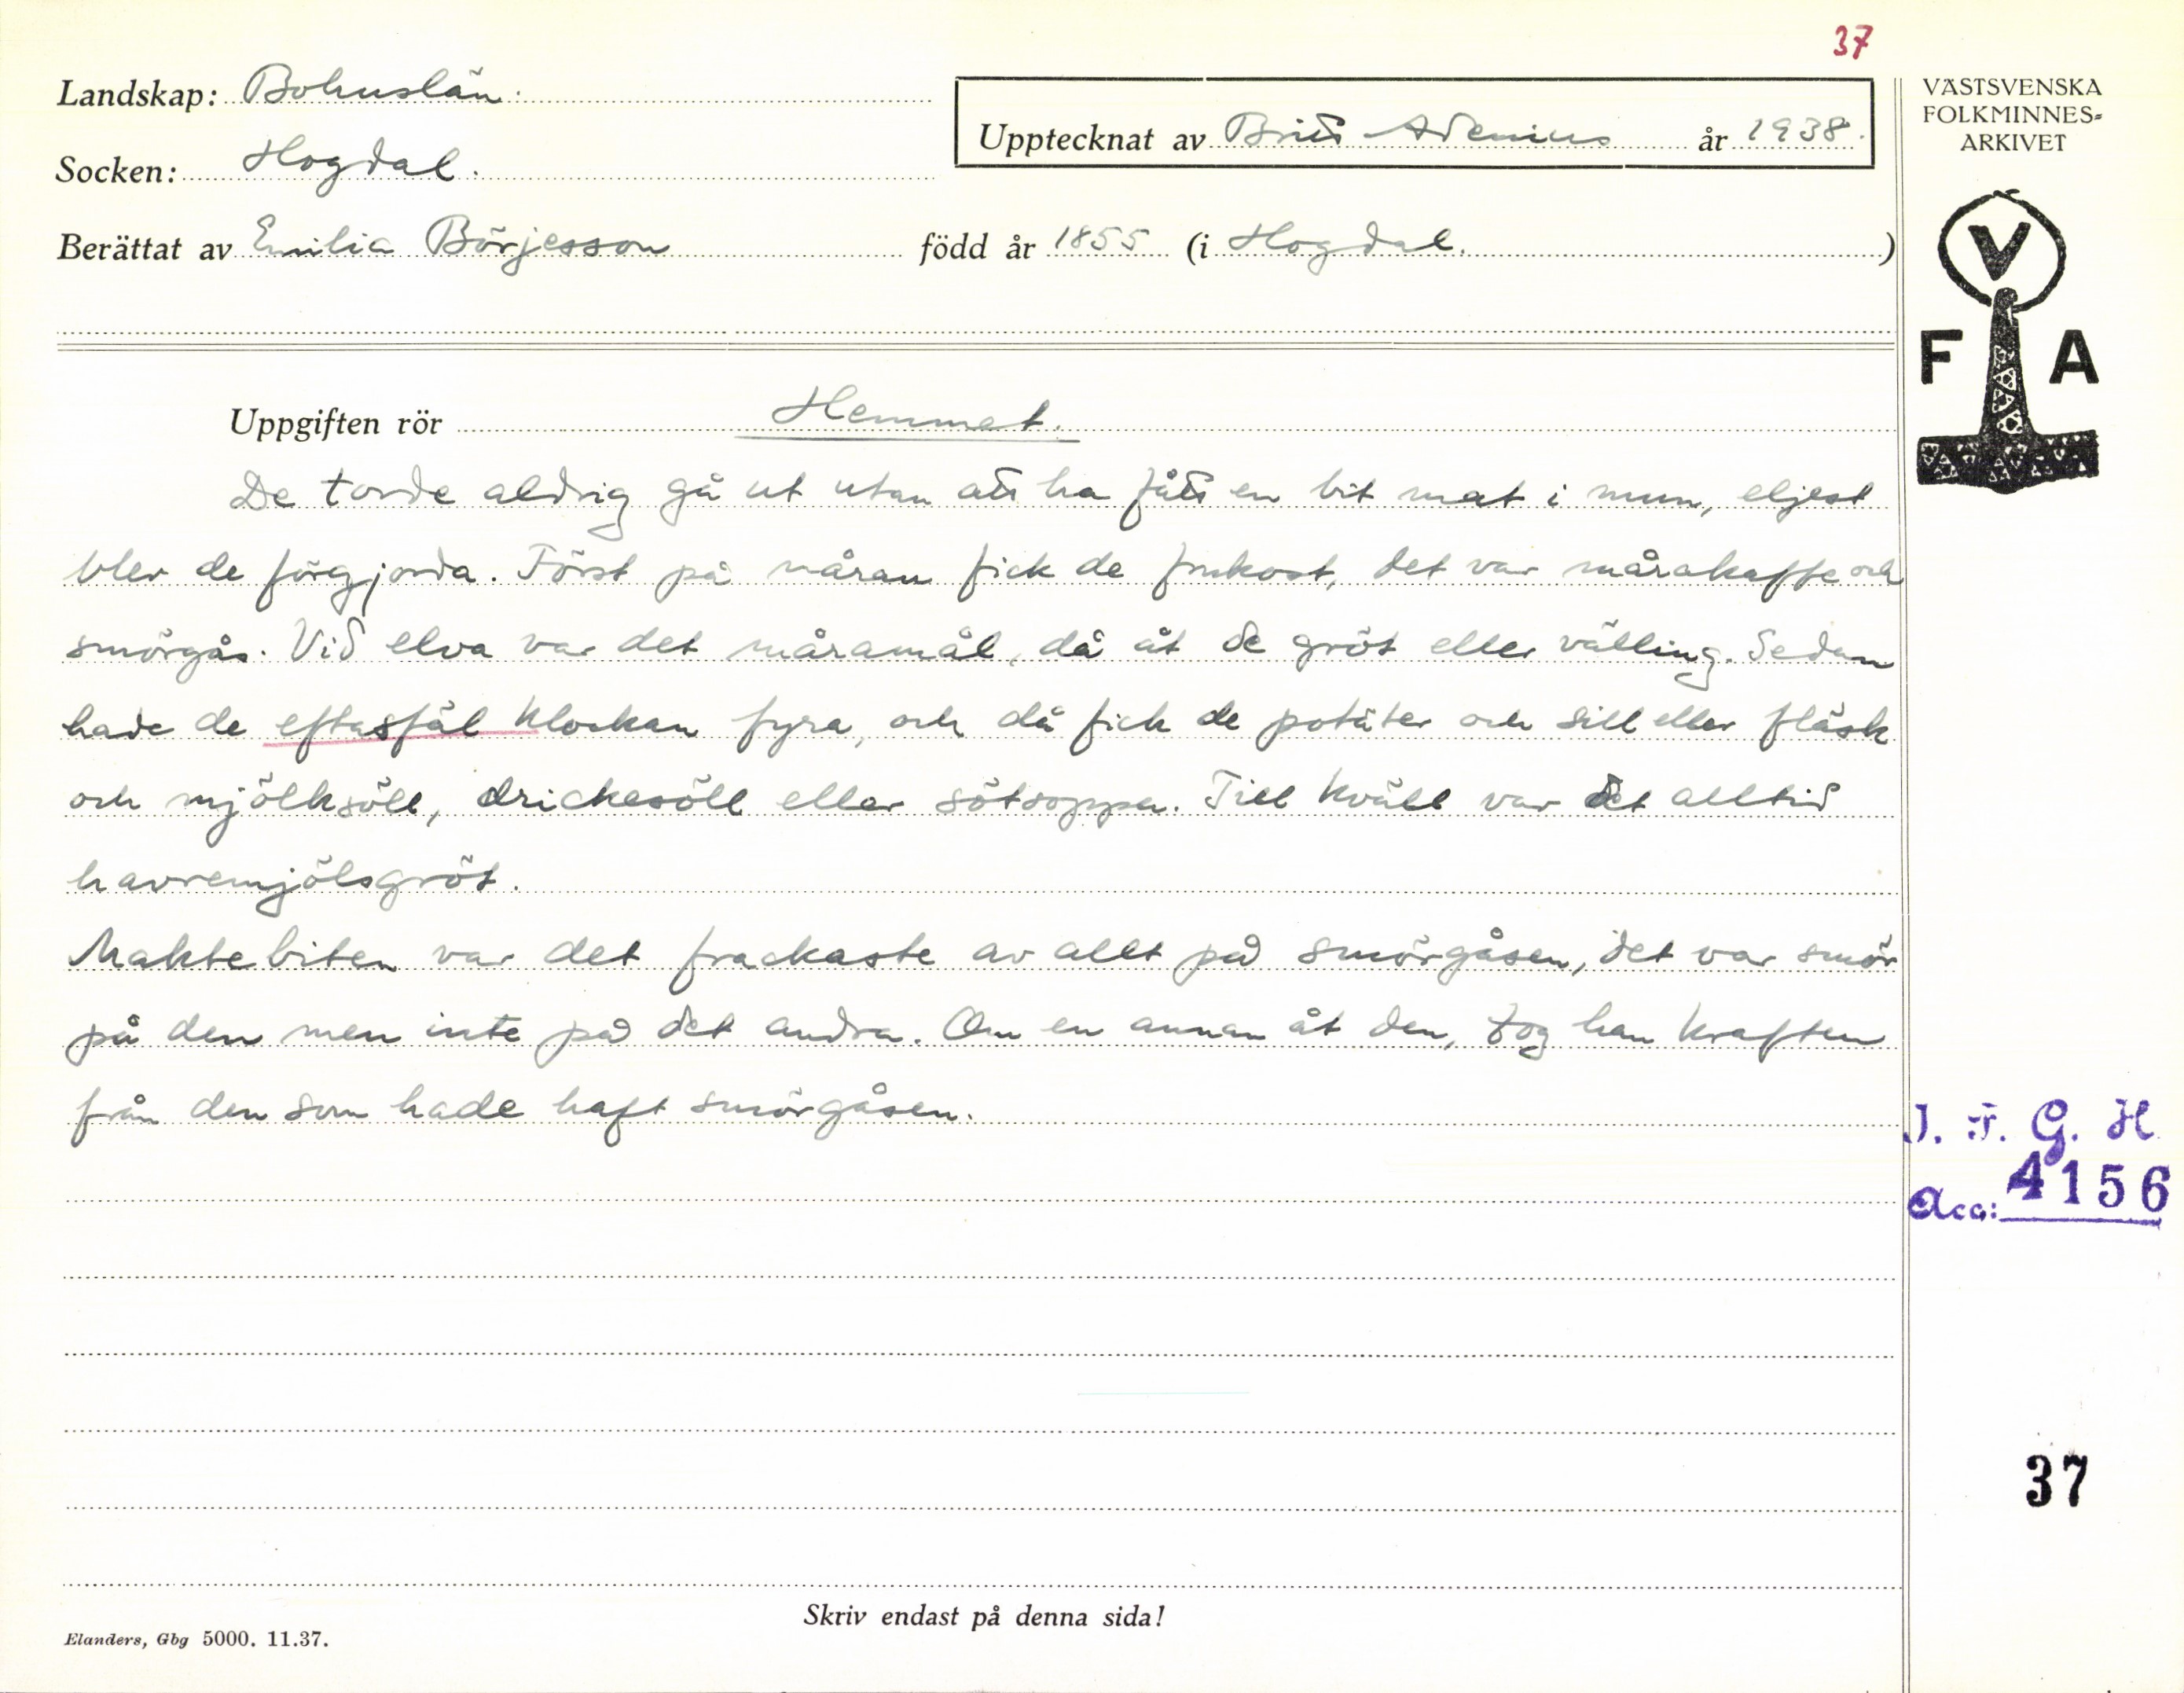 37
Landskap: Bohuslän.
Upptecknat av Britt Adenius år 1938.
Socken: Hogdal.
Berättat av Emilia Börjesson född år 1855 (i Hogdal.)
VÄSTSVENSKA
FOLKMINNES-
ARKIVET
V
F A
Uppgiften rör Hemmet.
De torde aldrig gå ut utan att ha fått en bit mat i mun, eljest
blev de förgjorda. Först på måran fick de frukost, det var mårakaffe och
smörgås. Vid elva var det måramål, då åt de gröt eller välling. Sedan
hade de eftasfäl klockan fyra, och då fick de potäter och sill eller fläsk
och mjölksöll, drickesöll eller sötsoppa. Till kväll var det alltid
havremjölsgröt.
Maktebiten var det frackaste av allt på smörgåsen, det var smör
på den men inte på det andra. Om en annan åt den, tog han kraften
från den som hade haft smörgåsen.
I. F. G. H
Acc: 4156
37
Skriv endast på denna sida!
Elanders, Gbg 5000. 11.37.